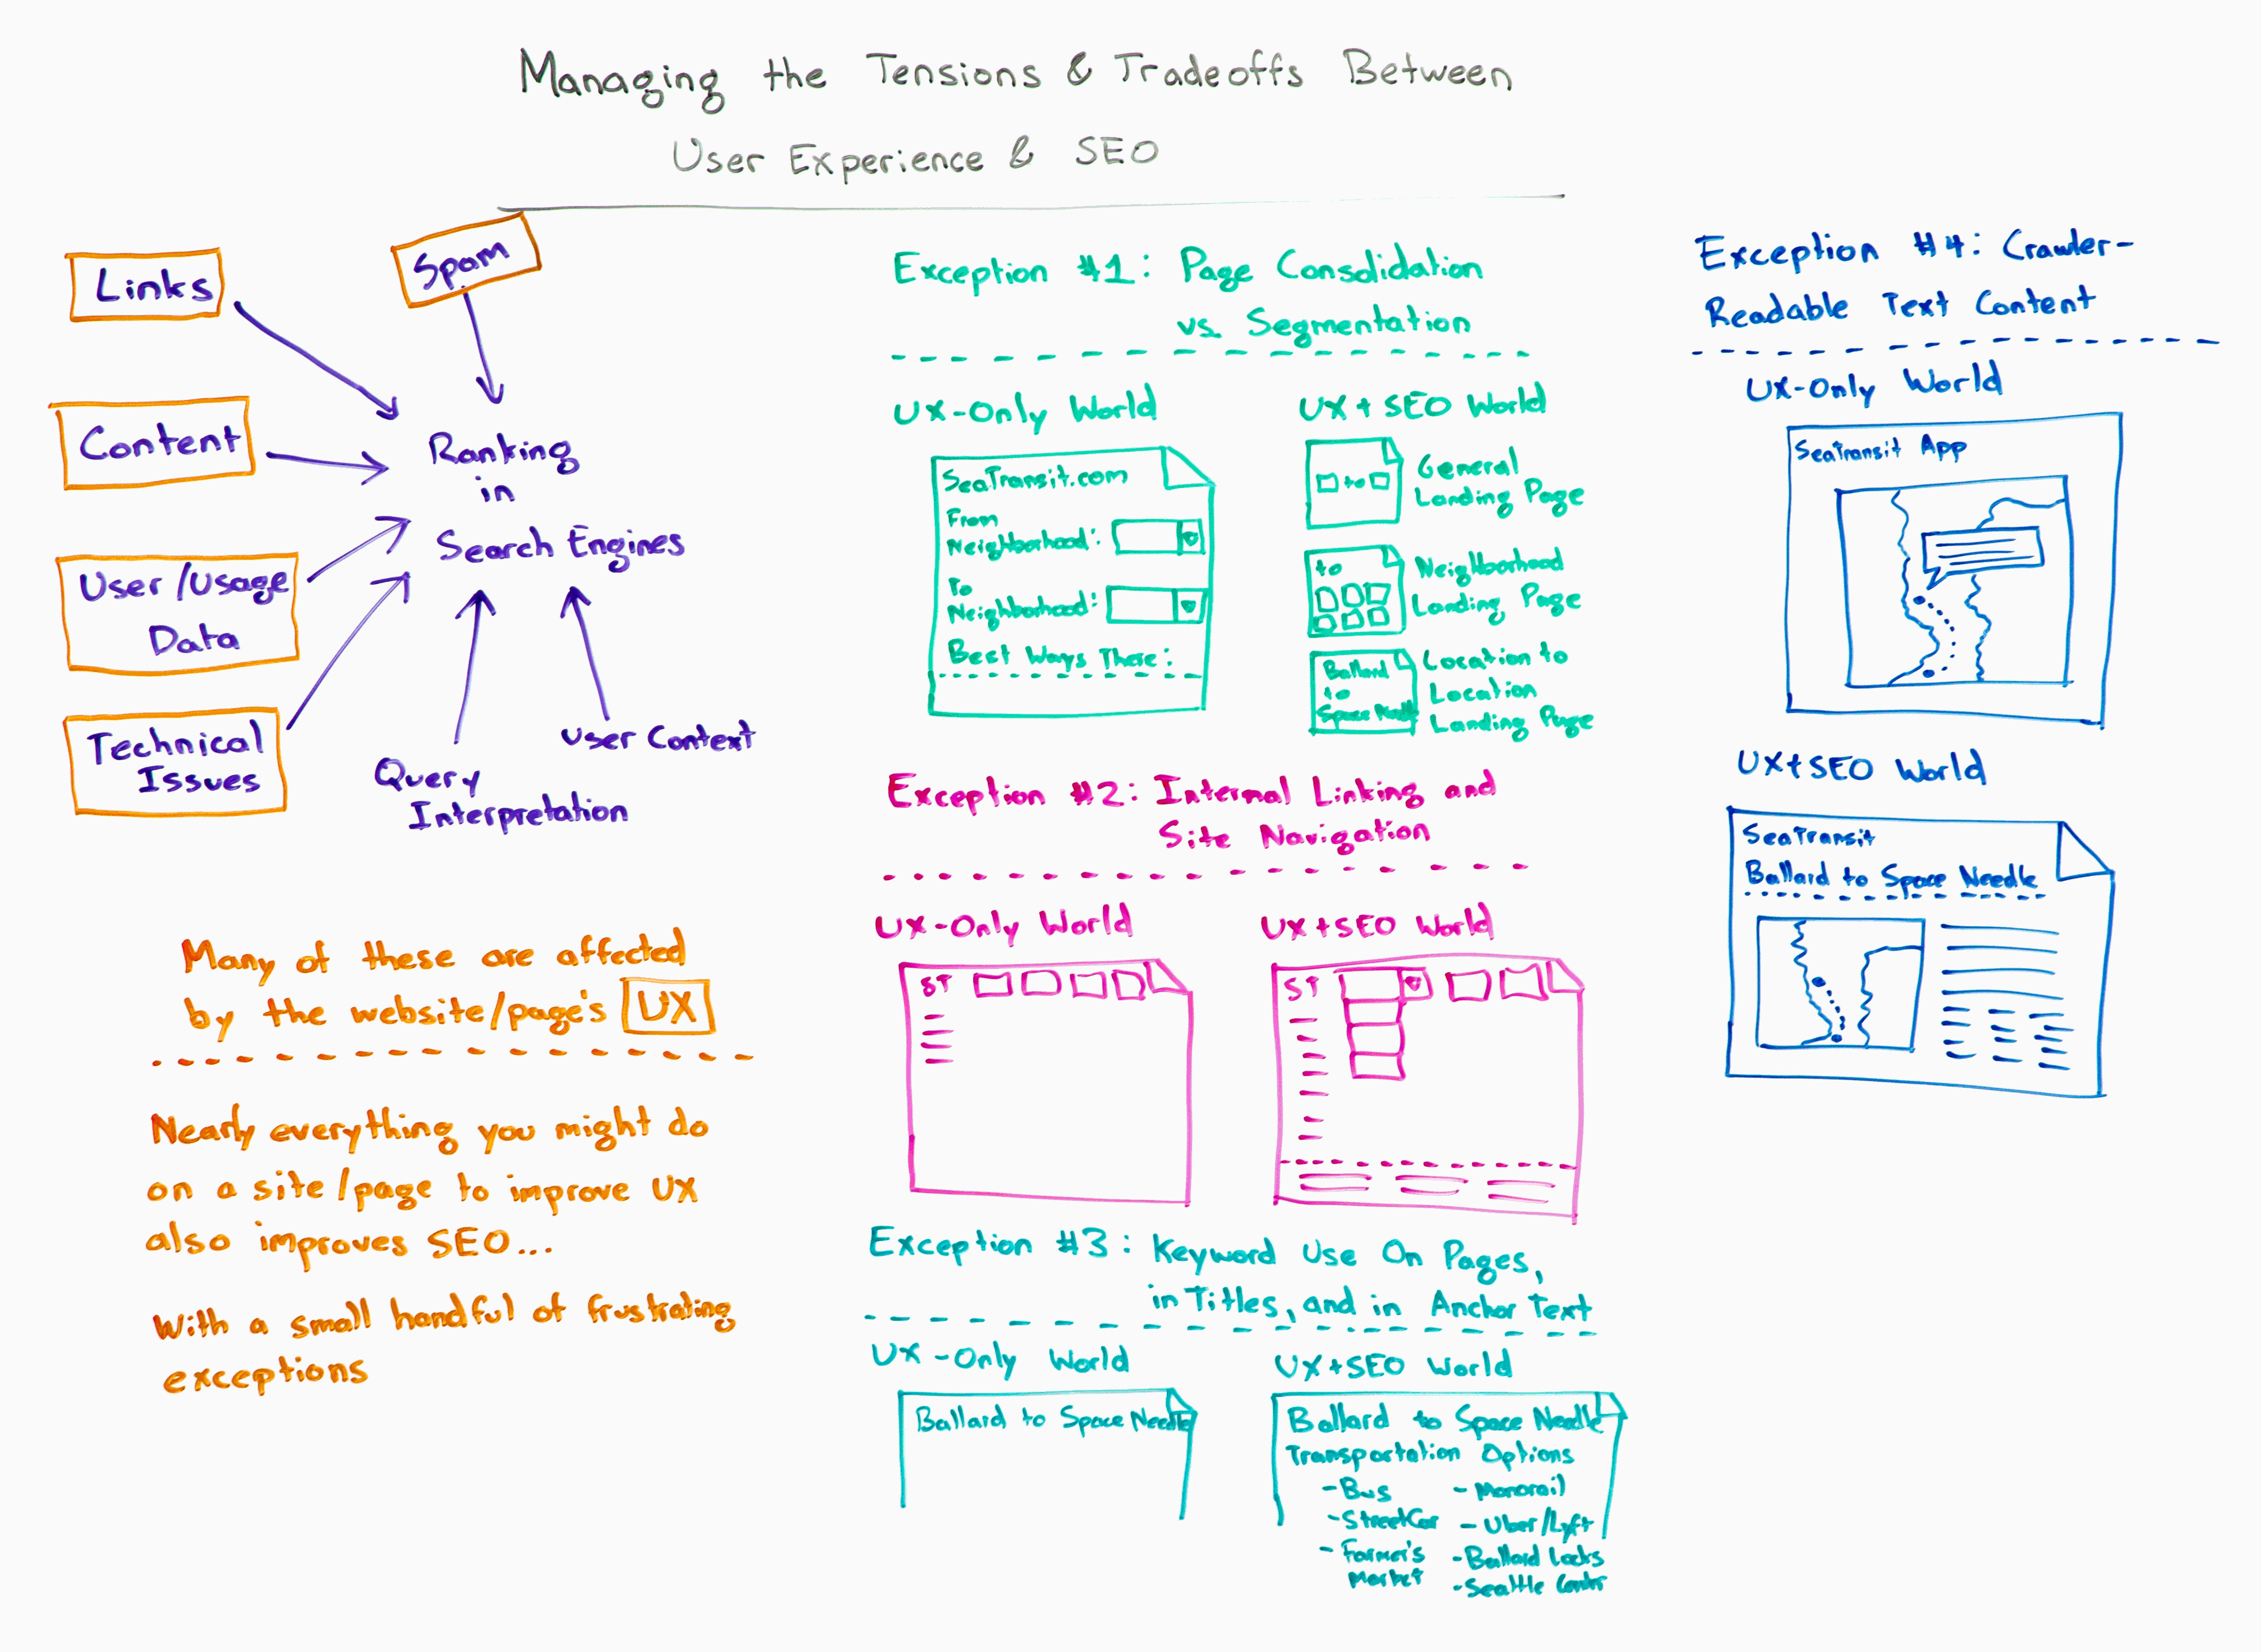 Managing the Tensions & Tradeoffs Between
User Experience & SEO
Links
Spam
Content
User/Usage
Data
Technical
Issues
Ranking
in
Search Engines
Query
Interpretation
User Context
Many of these are affected
by the website/page's UX
Nearly everything you might do
on a site/page to improve UX
also improves SEO...
With a small handful of frustrating
exceptions
Exception #1: Page Consolidation
vs. Segmentation
UX-Only World
SeaTransit.com
From
Neighborhood:
To
Neighborhood:
Best Ways There:
UX+SEO World
to
General
Landing Page
to
Neighborhood
Landing Page
Ballard
to
Space Needle
Location to
Location
Landing Page
Exception #2: Internal Linking and
Site Navigation
UX-Only World
ST
UX+SEO World
ST
Exception #3: Keyword Use On Pages,
in Titles, and in Anchor Text
UX-Only World
Ballard to Space Needle
UX+SEO World
Ballard to Space Needle
Transportation Options
-Bus
-StreetCar
-Farmer's
Market
-Monorail
-Uber/Lyft
-Ballard Locks
-Seattle Center
Exception #4: Crawler-
Readable Text Content
UX-Only World
SeaTransit App
UX+SEO World
SeaTransit
Ballard to Space Needle